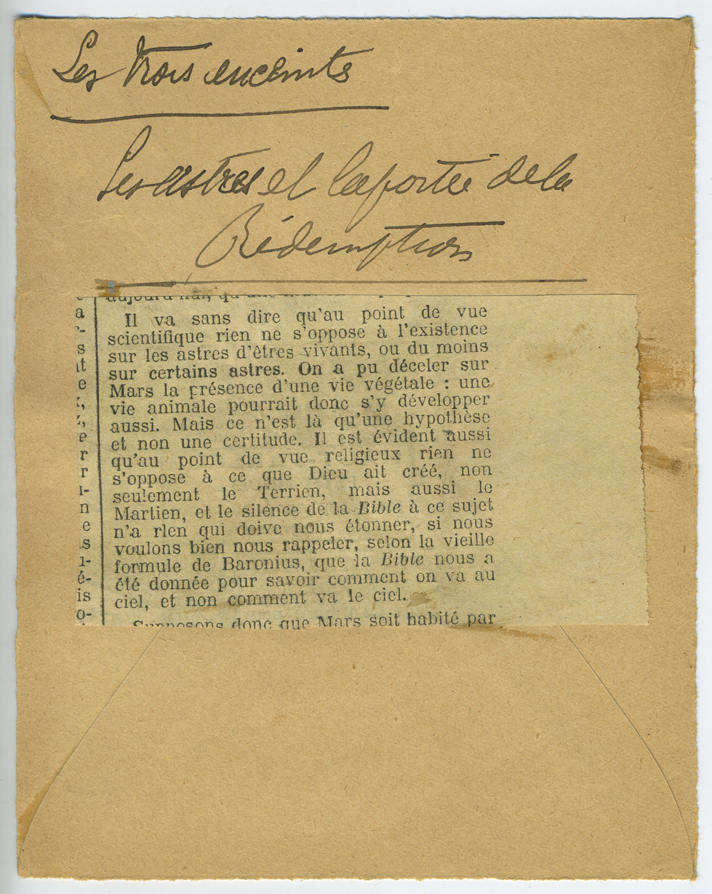 Les trois enceints
Les astres et la portée de la
Rédemption
aujourd'hui, qu'une
Il va sans dire qu'au point de vue
scientifique rien ne s'oppose à l'existence
sur les astres d'êtres vivants, ou du moins
sur certains astres. On a pu déceler sur
Mars la présence d'une vie végétale : une
vie animale pourrait donc s'y développer
aussi. Mais ce n'est là qu'une hypothèse
et non une certitude. Il est évident aussi
qu'au point de vue religieux rien ne
s'oppose à ce que Dieu ait créé, non
seulement le Terrien, mais aussi le
Martien, et le silence de la Bible à ce sujet
n'a rien qui doive nous étonner, si nous
voulons bien nous rappeler, selon la vieille
formule de Baronius, que la Bible nous a
été donnée pour savoir comment on va au
ciel, et non comment va le ciel.
Supposons donc que Mars soit habité par